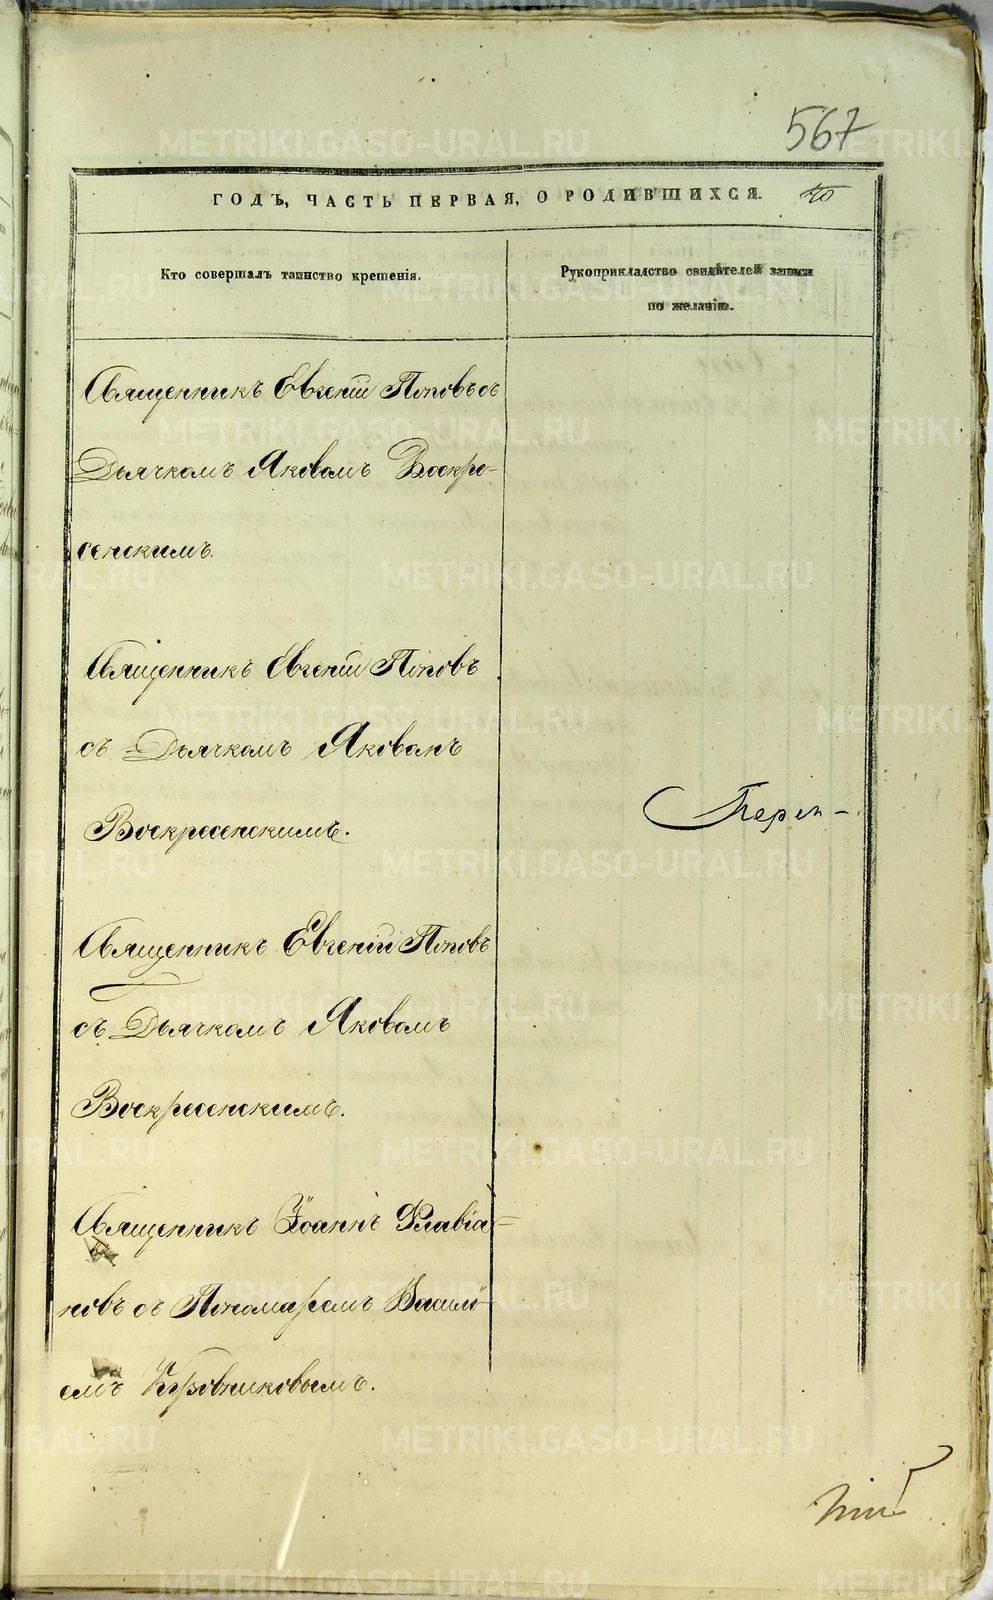 567
ГОДЪ, ЧАСТЬ ПЕРВАЯ, О РОДИВШИХСЯ.
Кто совершалъ таинство крещенія.
Рукоприкладство свидѣтелей записи
по желанію.
Священникъ Евгеній Поповъ съ
Дьячкомъ Яковомъ Воскре-
сенскимъ.
Священникъ Евгеній Поповъ
съ Дьячкомъ Яковомъ
Воскресенскимъ.
Священникъ Евгеній Поповъ
съ Дьячкомъ Яковомъ
Воскресенскимъ.
Священникъ Іоаннъ Флавіа-
новъ съ Пономаремъ Васильи-
емъ
METRIKI.GASO-URAL.RU